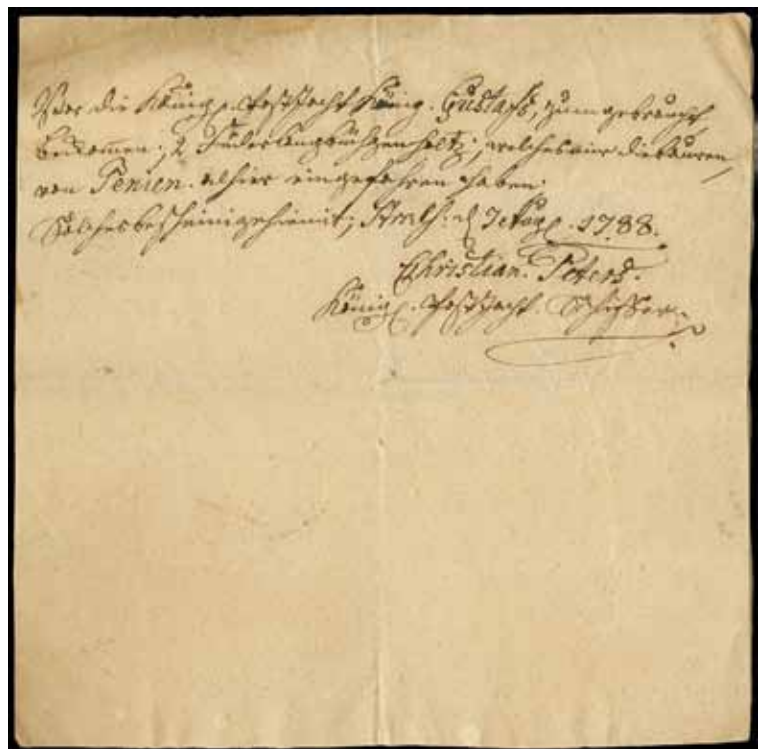 Vor die Königl. Postjacht König. Gustafs, zum gebrauch
bekommen; 2 Fuder lang büchgen holtz, welches mir die bauren
von Penien. alhier eingefahren haben.
Solches bescheinige hiemit; d 1788.
Christian. Peters.
Königl. Postjacht. Schiffer.